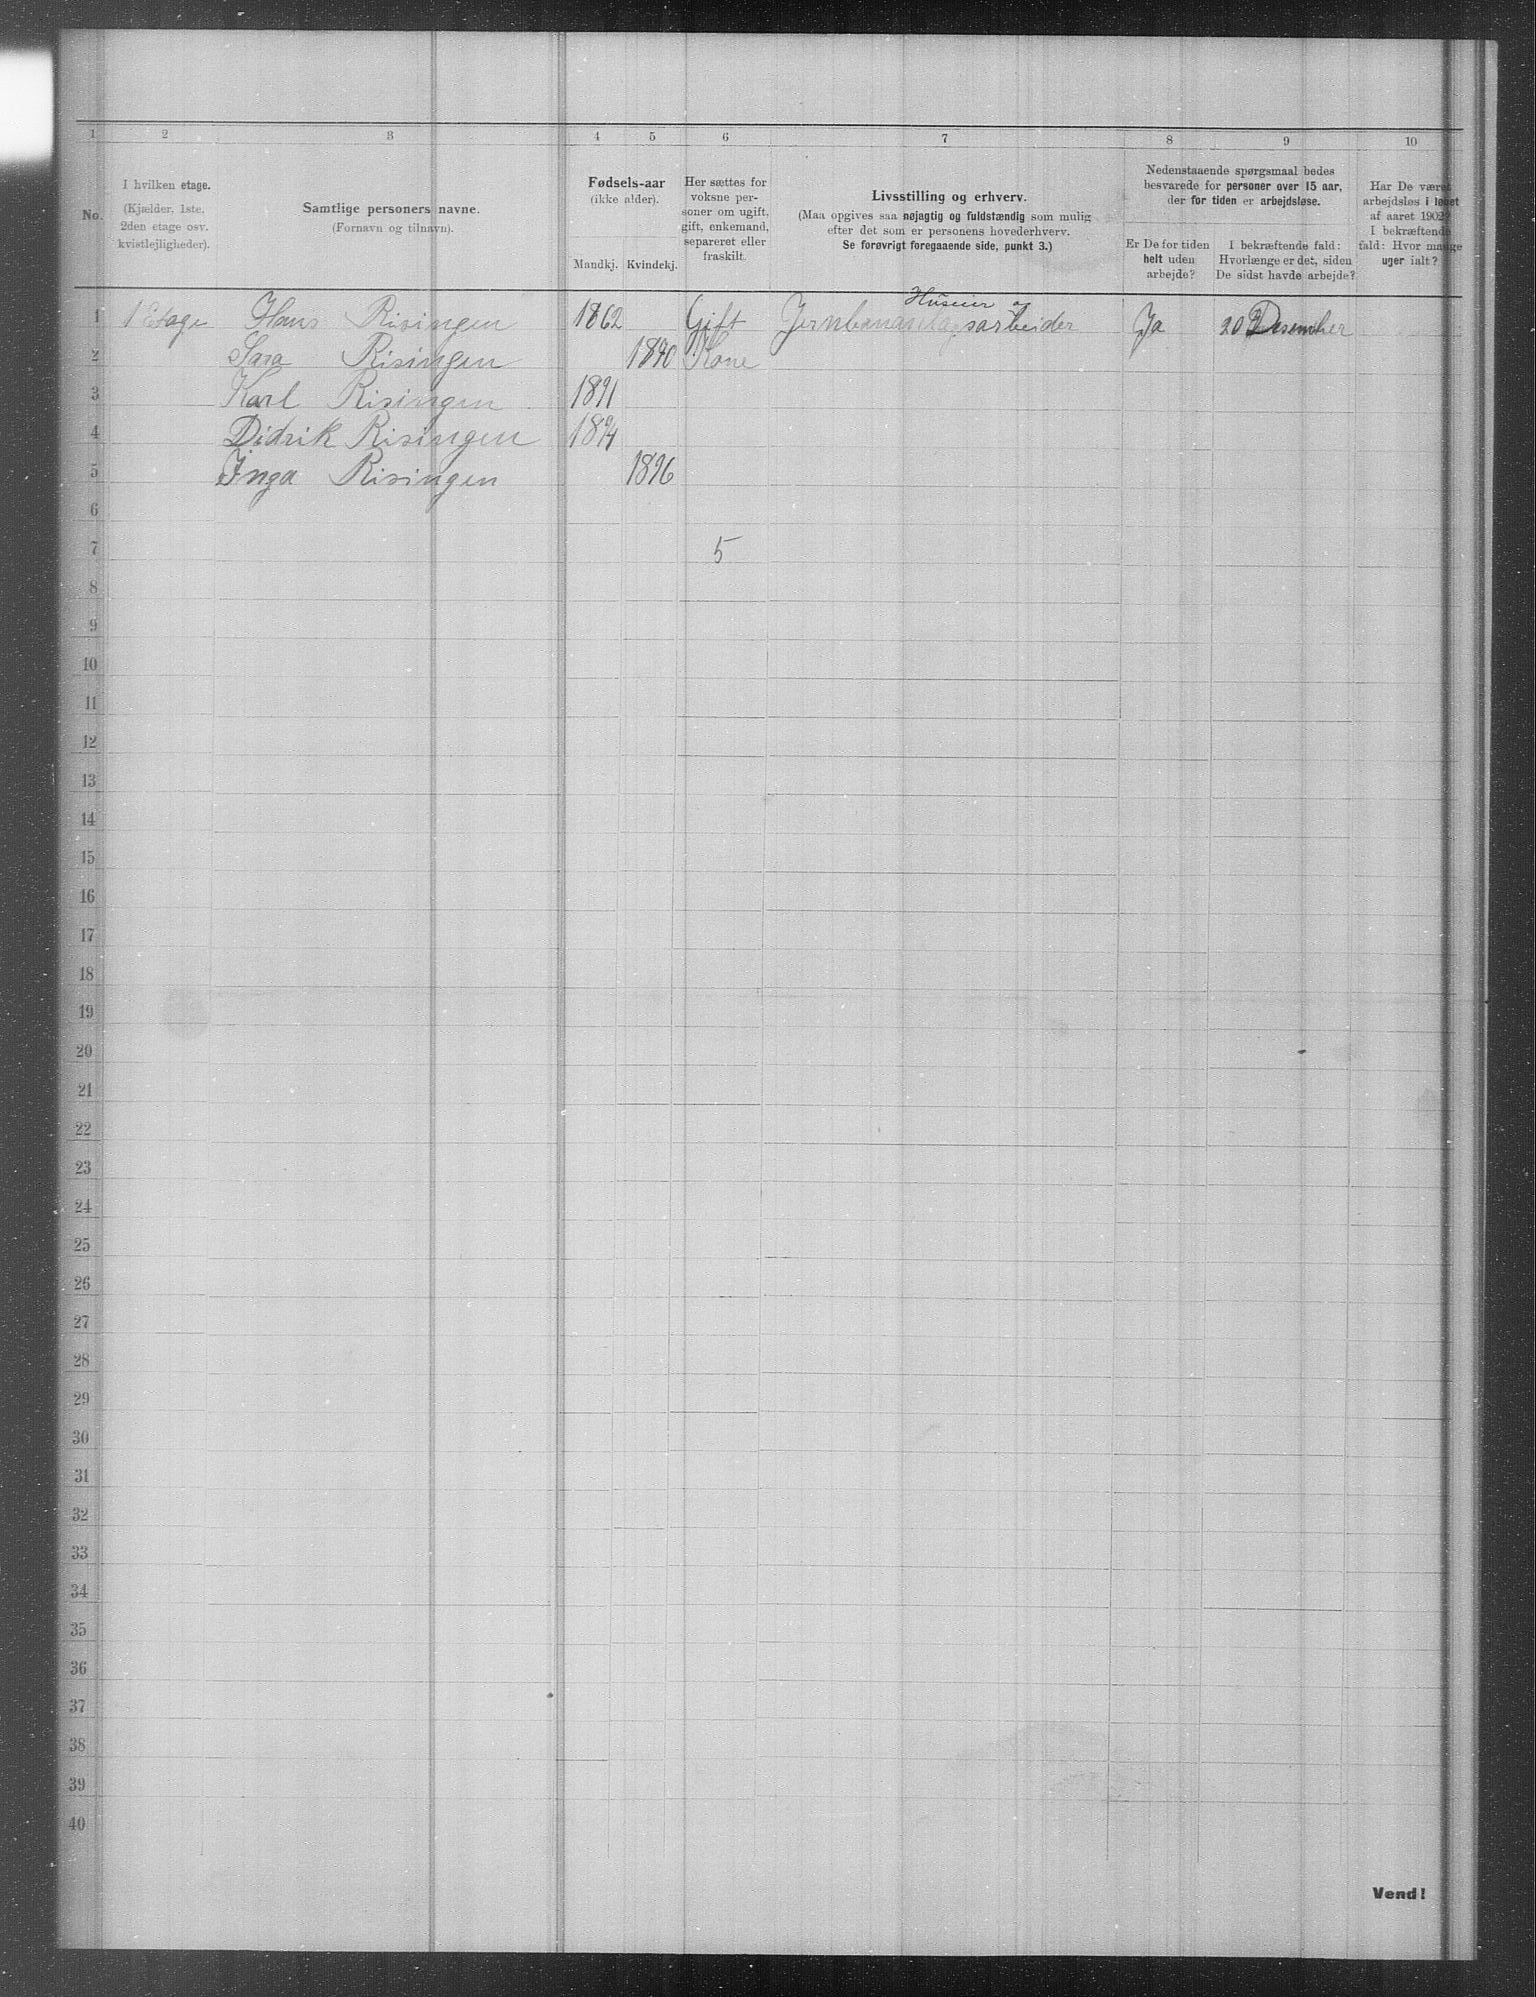 1 2 3 4 5 6 7 8 9 10
No.
I hvilken etage.
(Kjælder, 1ste.
2den etage osv.
kvistlejligheder).
Samtlige personers navne.
(Fornavn og tilnavn).
Fødsels-aar
(ikke alder).
Mandkj. Kvindekj.
Her sættes for
voksne per-
soner om ugift,
gift, enkemand,
separeret eller
fraskilt.
Livsstilling og erhverv.
(Maa opgives saa nøjagtig og fuldstændig som mulig
efter det som er personens hovederhverv.
Se forøvrigt foregaaende side, punkt 3.)
Nedenstaaende spørgsmaal bedes
besvarede for personer over 15 aar,
der for tiden er arbejdsløse.
Er De for tiden
helt uden
arbejde?
I bekræftende fald:
Hvorlænge er det, siden
De sidst havde arbejde?
Har De været
arbejdsløs i løbet
af aaret 1902?
I bekræftende
fald: Hvor mange
uger ialt?
Huseier og
1 1 Etage Hans Risingen 1862 Gift Jernbaneanlagsarbeider Ja 20 Desember
2 Sara Risingen 1870 Kone
3 Karl Risingen 1891
4 Didrik Risingen 1894
5 Inga Risingen 1896
6
7 5
8
9
10
11
12
13
14
15
16
17
18
19
20
21
22
23
24
25
26
27
28
29
30
31
32
33
34
35
36
37
38
39
40
Vend!